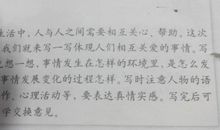 生活中,人与人之间需要相互关心、帮助。这次
我们就来写一写体现人们相互关爱的事情。写
想一想,事情发生在怎样的环境里,是怎么发
事情发展变化的过程怎样。写时注意人物的语
作、心理活动等,要表达真情实感。写完后可
学交换意见。